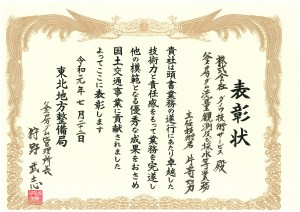 表彰状
株式会社 ダム技術サービス 殿
釜房ダム流量観測及び採水等業務
主任技術者 片寄
貴社は頭書業務の遂行にあたり卓越した
技術力と責任感をもって業務を完遂し
他の模範となる優秀な成果をおさめ
国土交通事業に貢献されました
よってここに表彰します
令和元年 七月二十二日
東北地方整備局
釜房ダム管理所長
狩野 武志